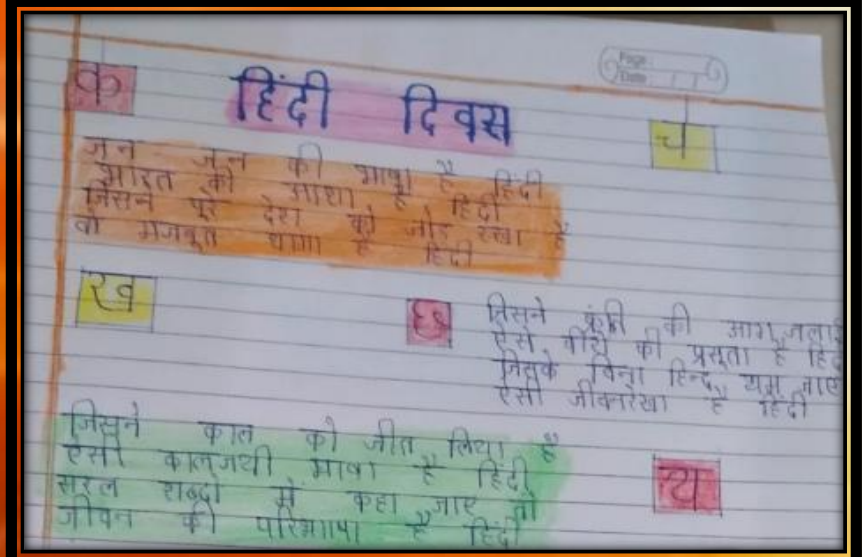 Page:
Date:
क
हिंदी दिवस
च
जन जन की भाषा है हिंदी
भारत की आशा है हिंदी
जिसने पूरे देश को जोड़ रखा है
वो मजबूत धागा है हिंदी
ख
छ
जिसने क्रांति की आग जलाई
ऐसे वीरों की प्रसूता है हिंदी
जिसके बिना हिन्द थम जाए
ऐसी जीवनरेखा है हिंदी
जिसने काल को जीत लिया है
ऐसी कालजयी भाषा है हिंदी
सरल शब्दों में कहा जाए तो
जीवन की परिभाषा है हिंदी